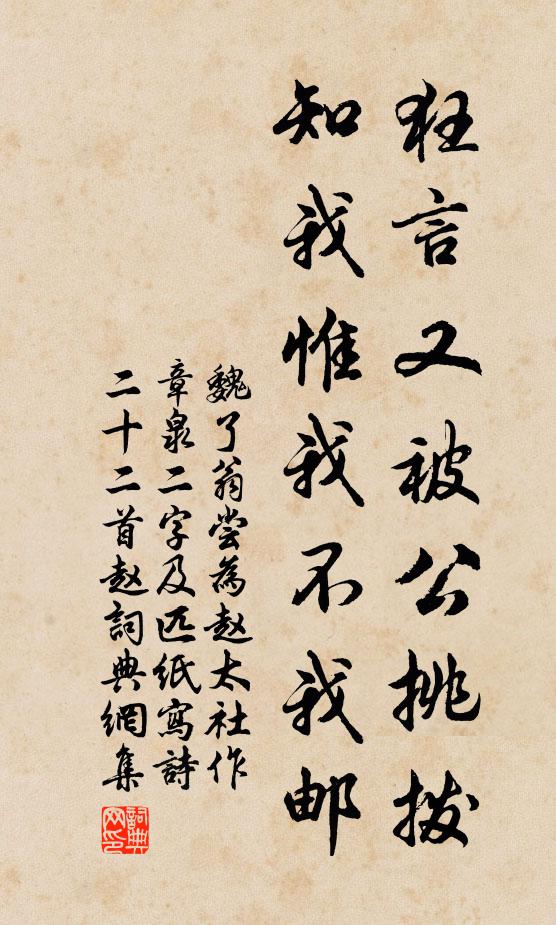 狂言又被公挑拨
知我惟我不我邮
魏了翁尝為赵太社作
章泉二字及匹纸寫詩
二十二首赵詞典網集
詞典网印